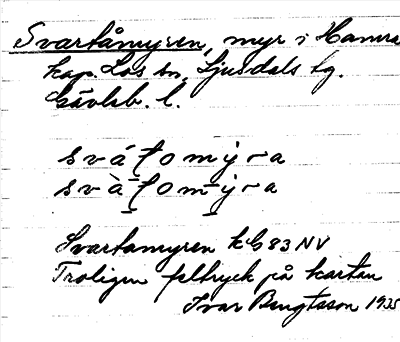 Svartåmyren, myr i Hamra
kap. Los sn, Ljusdals tg.
Gävleb. l.
svátomýra
svàtomýra
Svartamyren kb 83 NV
Troligen feltryck på kartan
Ivar Bengtsson 1935